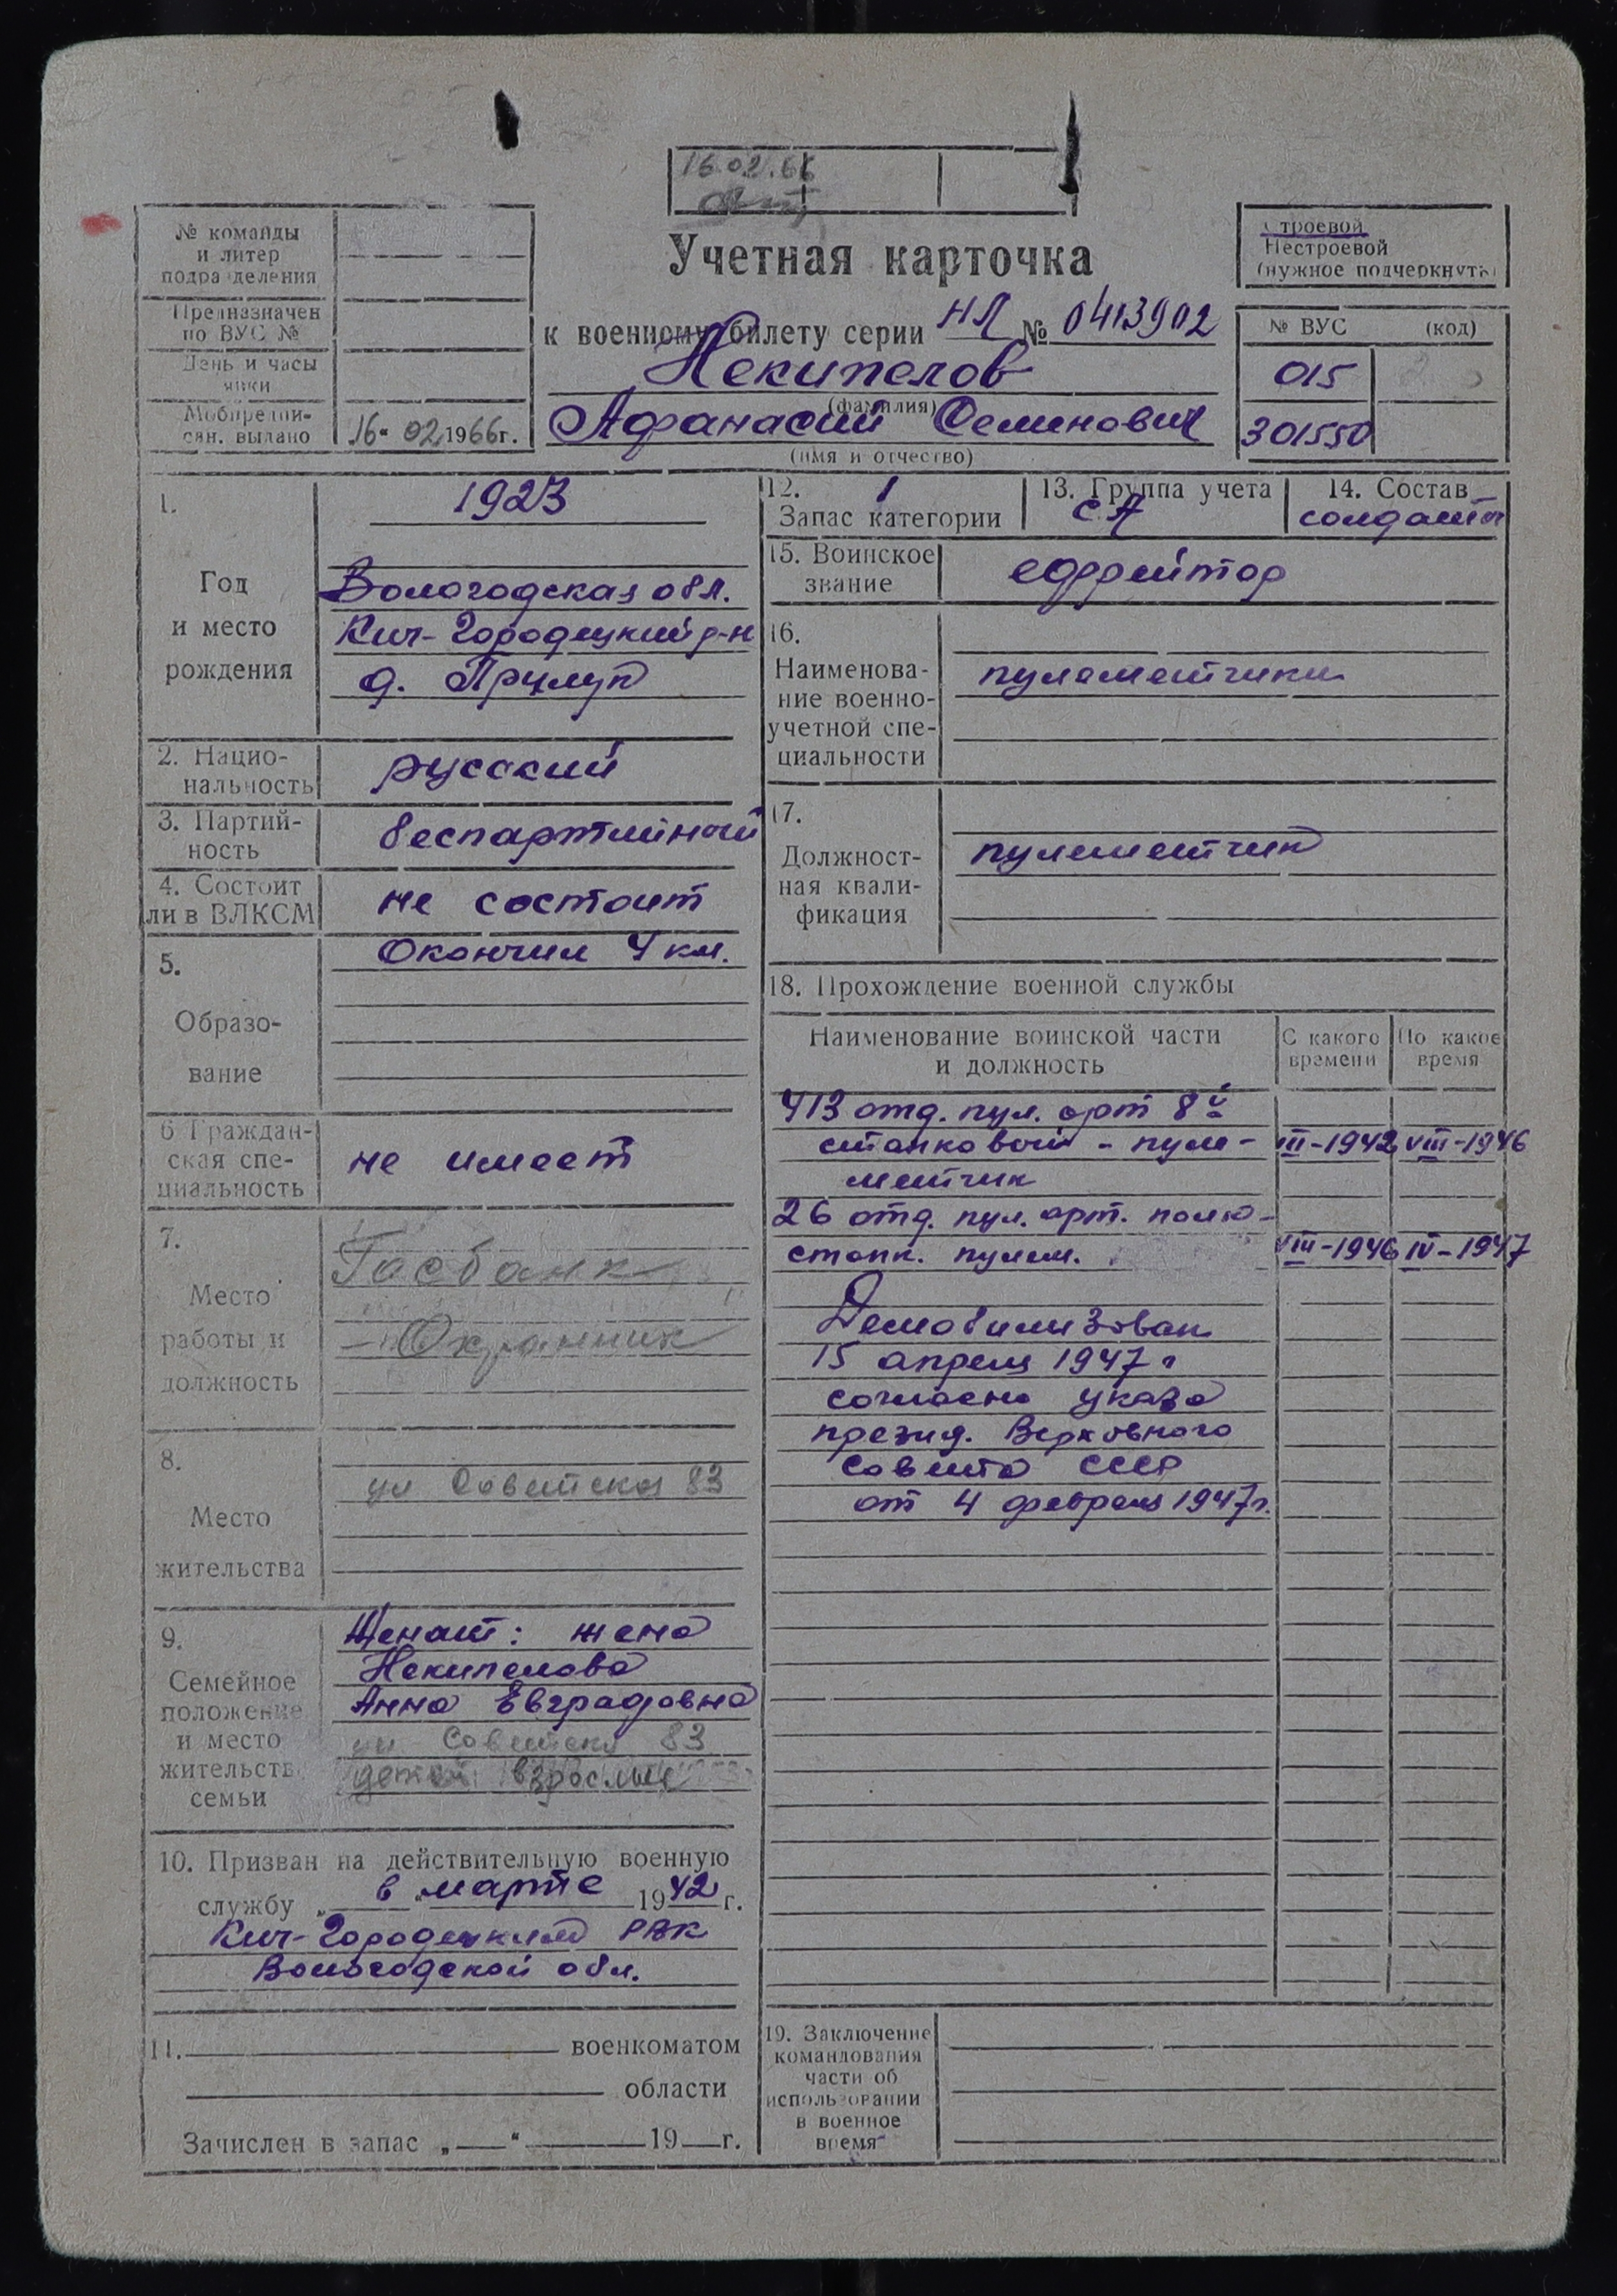 16.02.66
№ команды
и литер
подразделения
Предназначен
по ВУС №
День и часы
явки
Мобпредпи-
сан. выдано
16 " 02 1966 г.
Учетная карточка
к военному билету серии НЛ № 0413902
Некипелов
(фамилия)
Афанасий Семенович
(имя и отчество)
Строевой
Нестроевой
(нужное подчеркнуть)
№ ВУС (код)
015
301550
1. Год и место рождения
1923
Вологодская обл.
Кич-Городецкий р-н
д. Прилук
2. Нацио-
нальность
русский
3. Партий-
ность
беспартийный
4. Состоит
ли в ВЛКСМ
не состоит
5. Образо-
вание
Окончил 4 кл.
6 Граждан-
ская спе-
циальность
не имеет
7.
Место
работы и
должность
Госбанк
- Охранник
8.
Место
жительства
ул Советская 83
9.
Семейное
положение
и место
жительств
семьи
Женат: жена
Некипелова
Анна Евграфовна
ул Советска 83
детей взрослые
10. Призван на действительную военную
службу „ в " марте 1942 г.
Кич-Городецким РВК
Вологодской обл.
11. военкоматом
области
Зачислен в запас „ " 19 г.
12. 1
Запас категории
13. Группа учета
СА
14. Состав
солдаты
15. Воинское
звание
ефрейтор
16.
Наименова-
ние военно-
учетной спе-
циальности
пулеметчики
17.
Должност-
ная квали-
фикация
пулеметчик
18. Прохождение военной службы
Наименование воинской части
и должность
С какого
времени
По какое
время
413 отд. пул. арт 8й
станковый - пуле- III-1942 VIII-1946
метчик
26 отд. пул. арт. полк -
станк. пулем. VIII-1946 IV-1947
Демобилизован
15 апреля 1947 г
согласно указа
презид. Верховного
Совета СССР
от 4 февраля 1947г.
19. Заключение
командования
части об
использовании
в военное
время